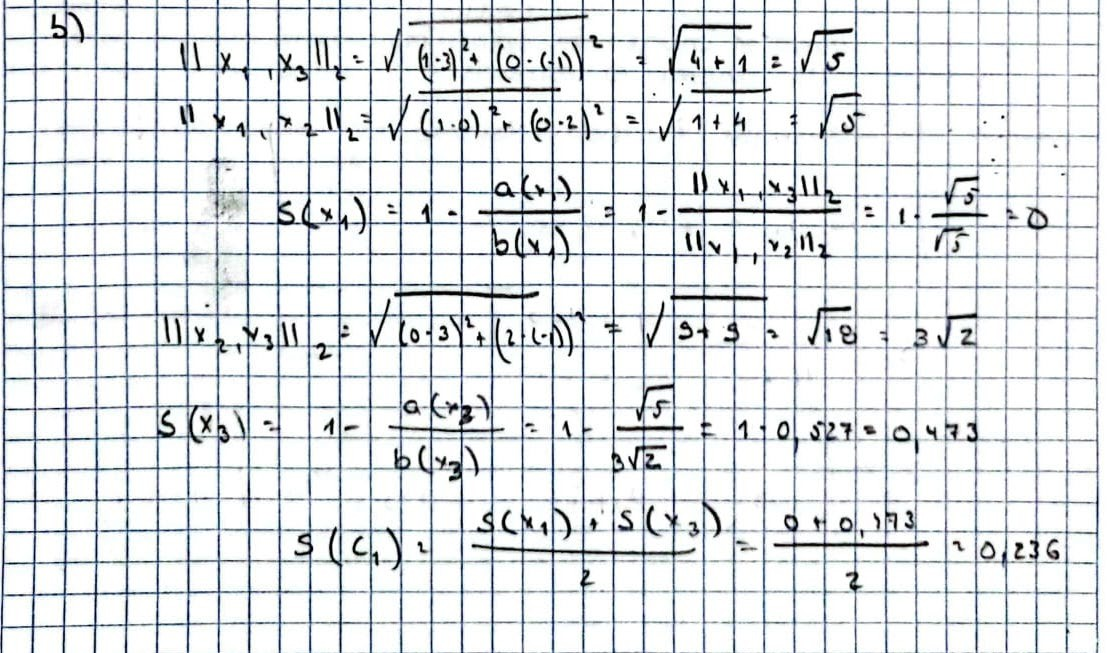 b)
||x₁,x₃||₂ = √((1-3)²+(0-(-1))² = √(4+1) = √5
||x₁,x₂||₂ = √((1-0)²+(0-2)² = √(1+4) = √5
S(x₁) = 1 - a(x₁)/b(x₁) = 1 - ||x₁,x₃||₂/||x₁,x₂||₂ = 1 - √5/√5 = 0
||x₂,x₃||₂ = √((0-3)²+(2-(-1))² = √(9+9) = √18 = 3√2
S(x₃) = 1 - a(x₃)/b(x₃) = 1 - √5/3√2 = 1-0,527 = 0,473
S(C₁) = S(x₁) + S(x₃)/2 = 0+0,473/2 = 0,236